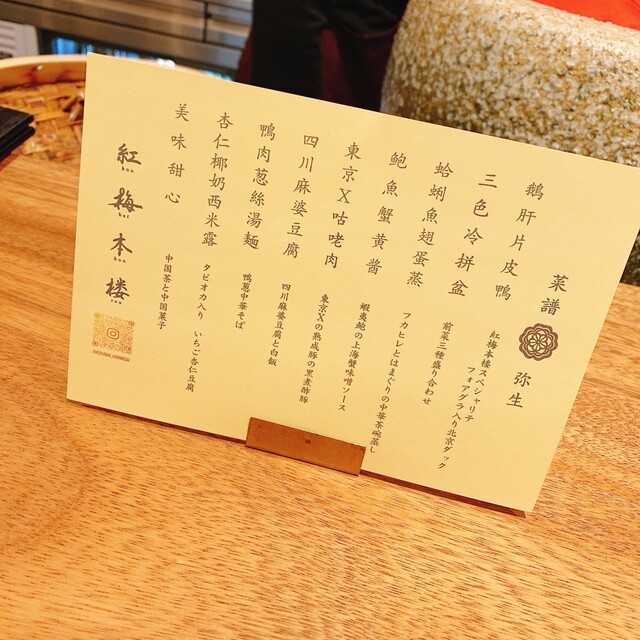 菜譜 弥生
鵝肝片皮鴨
紅梅本楼スペシャリテ
フォアグラ入り北京ダック
三色冷拼盆
前菜三種盛り合わせ
蛤蜊魚翅蛋蒸
フカヒレとはまぐりの中華茶碗蒸し
鮑魚蟹黄醤
蝦夷鮑の上海蟹味噌ソース
東京X咕咾肉
東京Xの熟成豚の黒煮酢豚
四川麻婆豆腐
四川麻婆豆腐と白飯
鴨肉葱絲湯麺
鴨葱中華そば
杏仁椰奶西米露
タピオカ入り いちご杏仁豆腐
美味甜心
中国茶と中国菓子
紅梅本楼